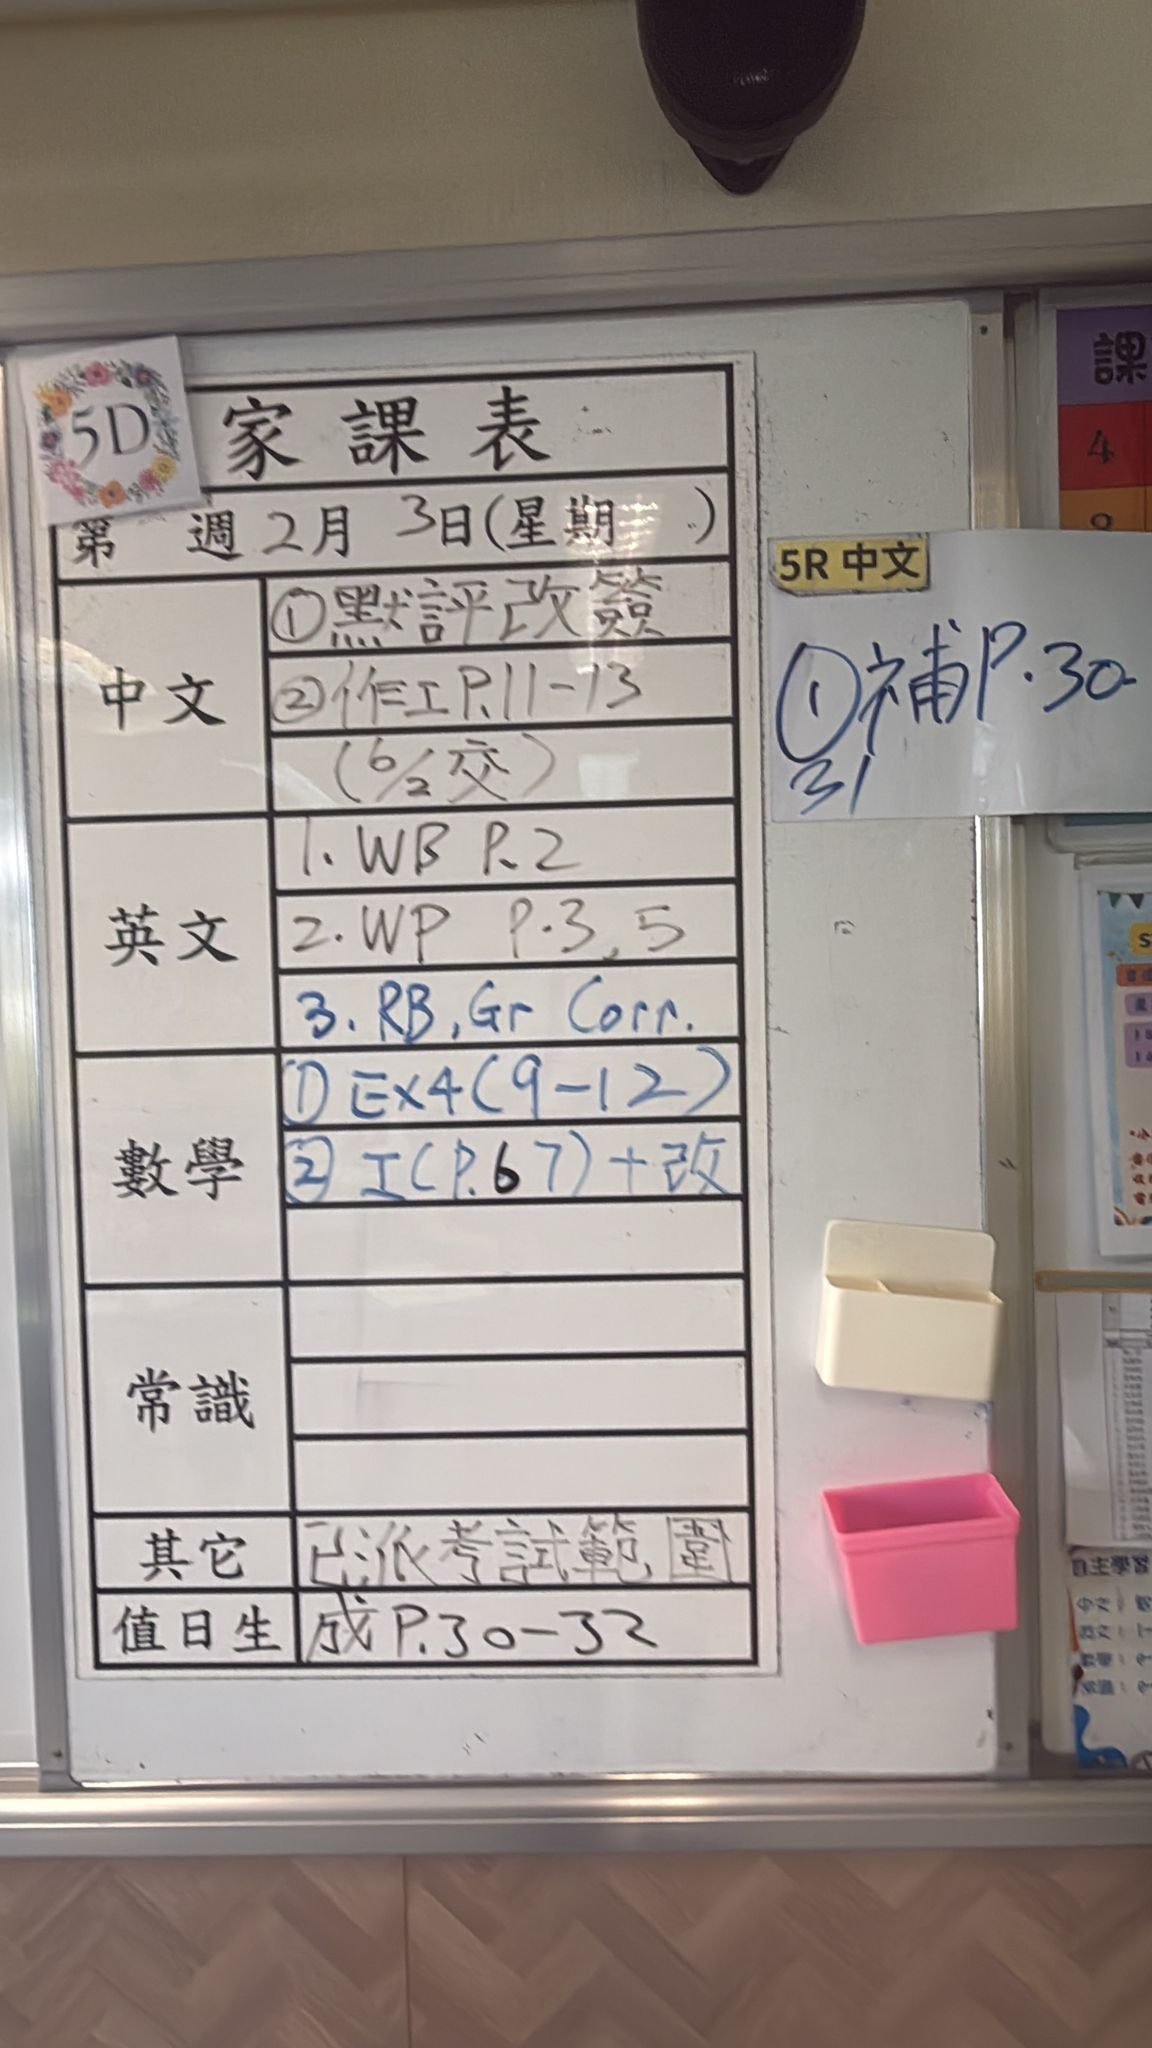 5D
家課表
第 週 2月 3日(星期 )
中文
①默評改簽
②作工P.11-13
(6/2交)
英文
1. WB P.2
2. WP P.3,5
3. RB, Gr Corr.
數學
① Ex4(9-12)
② 工(P.67)+改
常識
其它
已派考試範圍
值日生
成P.30-32
5R 中文
①補P.30-
31
課
4
自主學習